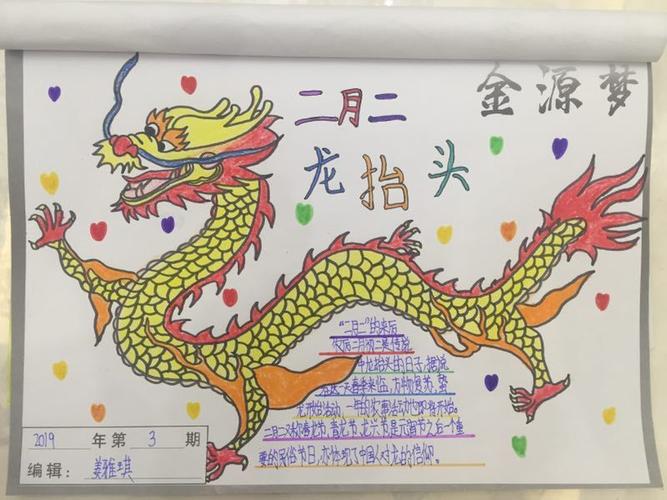 金源梦
二月二
龙抬头
“二月二”的来历
农历二月初二是传说
中龙抬头的日子，据说
在这一天春季来临，万物复苏，蛰
龙开始活动，一年的农事活动也即将开始。
二月二又称春龙节，青龙节，龙兴节，是元宵节之后一个重
要的民俗节日，亦体现了中国人对龙的信仰。
2019 年第 3 期
编辑：姜雅琪